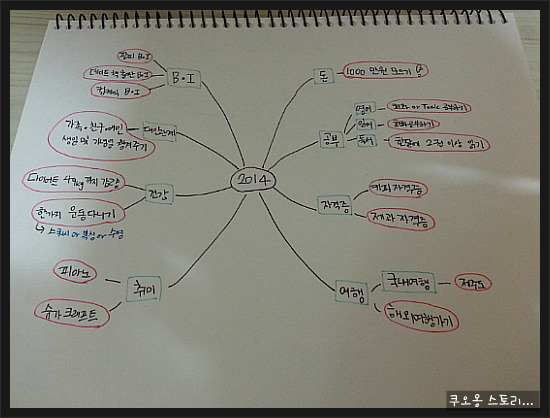 2014
B·I
B·I
B·I
B·I
대인관계
가족·친구·애인
생일 및 기념일 챙겨주기
건강
다이어트 감량
한가지 운동 다니기
or 복싱 or 수영
취미
피아노
슈가크래프트
돈
1000 만원 모으기
공부
영어
or Toeic 공부하기
일어
공부하기
독서
한달에 2권 이상 읽기
자격증
커피 자격증
제과 자격증
여행
국내여행
제주도
해외여행가기
쿠오옹 스토리...